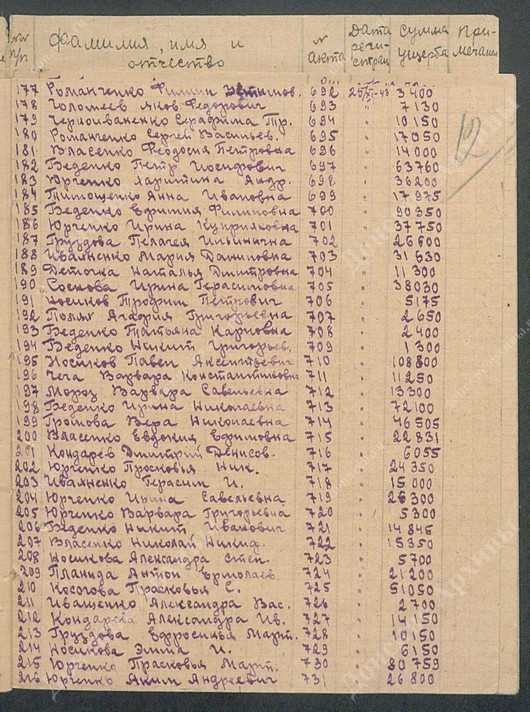 № п/п Фамилия, имя и отчество № акта Дата регистрации Сумма ущерба Примечания
12
177 Романченко Филипп 692 25/XI-43 3400
178 Голомеев Яков Федорович 693 " 7130
179 Черноиваненко Серафима Гр. 694 " 10150
180 Романченко Сергей Васильев. 695 " 17050
181 Власенко Феодосия Петровна 696 " 14000
182 Беденко Петр Иосифович 697 " 63760
183 Юрченко Харитина Андр. 698 " 36200
184 Тимошенко Анна Ивановна 699 " 17975
185 Беденко Ефимия Филиповна 700 " 90350
186 Юрченко Ирина Куприяновна 701 " 37750
187 Груздова Пелагея Ильинична 702 " 26600
188 Иваненко Мария Даниловна 703 " 31630
189 Деточка Наталья Дмитровна 704 " 11300
190 Соснова Ирина Герасимовна 705 " 38030
191 Носиков Трофим Петрович 706 " 5175
192 Поляк Агафия Григорьевна 707 " 2650
193 Беденко Татьяна Карповна 708 " 2400
194 Беденко Никит Григорьев. 709 " 1300
195 Носиков Павел Аксентьевич 710 " 108800
196 Чега Варвара Константиновна 711 " 11250
197 Мороз Варвара Савельевна 712 " 13300
198 Беденко Ирина Николаевна 713 " 72100
199 Громова Вера Николаевна 714 " 46505
200 Власенко Евдокия Ефимовна 715 " 22831
201 Кондарев Дмитрий Денисов. 716 " 6055
202 Юрченко Просковья Ник. 717 " 24350
203 Иваненко Герасим И. 718 " 15000
204 Юрченко Ирина Савельевна 719 " 26300
205 Юрченко Варвара Григорьевна 720 " 5300
206 Беденко Никит Иванович 721 " 14845
207 Власенко Николай Никиф. 722 " 15350
208 Носикова Александра Степ. 723 " 5700
209 Планида Антон Ермолаев. 724 " 21200
210 Косогова Просковья С. 725 " 51050
211 Иващенко Александра Вас. 726 " 2700
212 Кондарева Александра Ив. 727 " 14150
213 Груздова Ефросинья Март. 728 " 10150
214 Носикова Эмма И. 729 " 6150
215 Юрченко Прасковья Март. 730 " 80759
216 Юрченко Яким Андреевич 731 " 26800